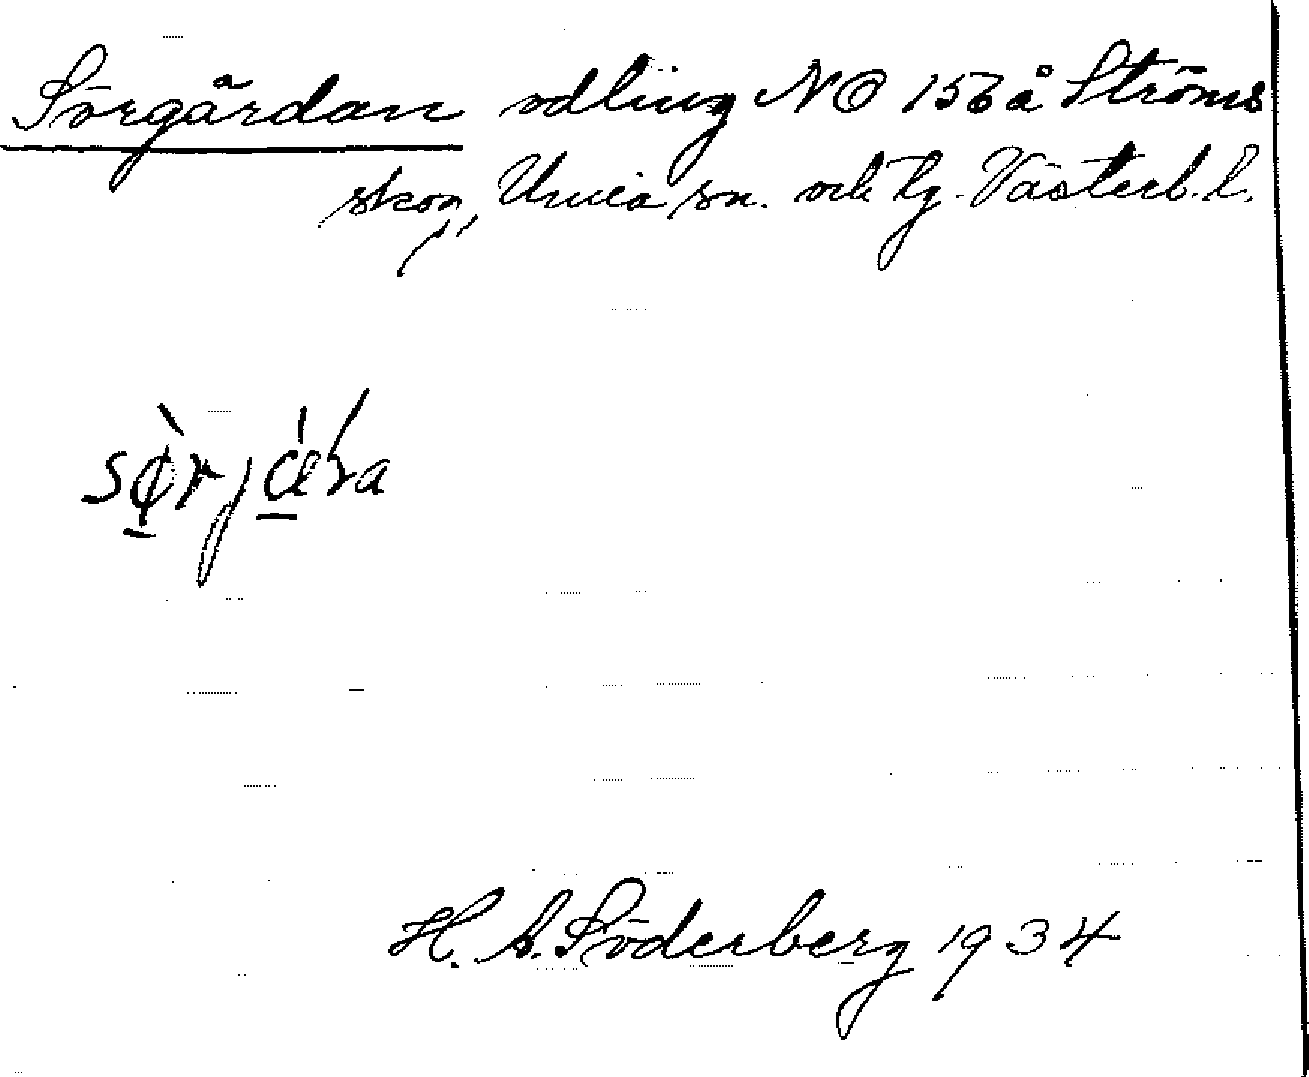 Sörgärdan odling NO 156 å Ströms
skog, Umeå sn. och tg. Västerb. l.
H. A. Söderberg 1934